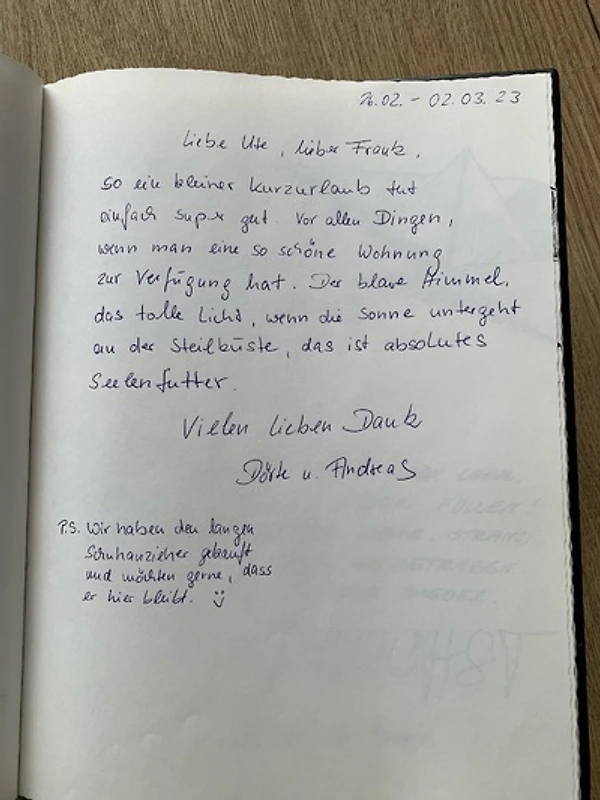 26.02. - 02.03.23
Liebe Ute, lieber Frank,
so ein kleiner Kurzurlaub tut
einfach super gut. Vor allen Dingen,
wenn man eine so schöne Wohnung
zur Verfügung hat. Der blaue Himmel,
das tolle Licht, wenn die Sonne untergeht
an der Steilküste, das ist absolutes
Seelenfutter.
Vielen lieben Dank
Dörte u. Andreas
P.S. Wir haben den langen
Schuhanzieher gekauft
und möchten gerne, dass
er hier bleibt. :)